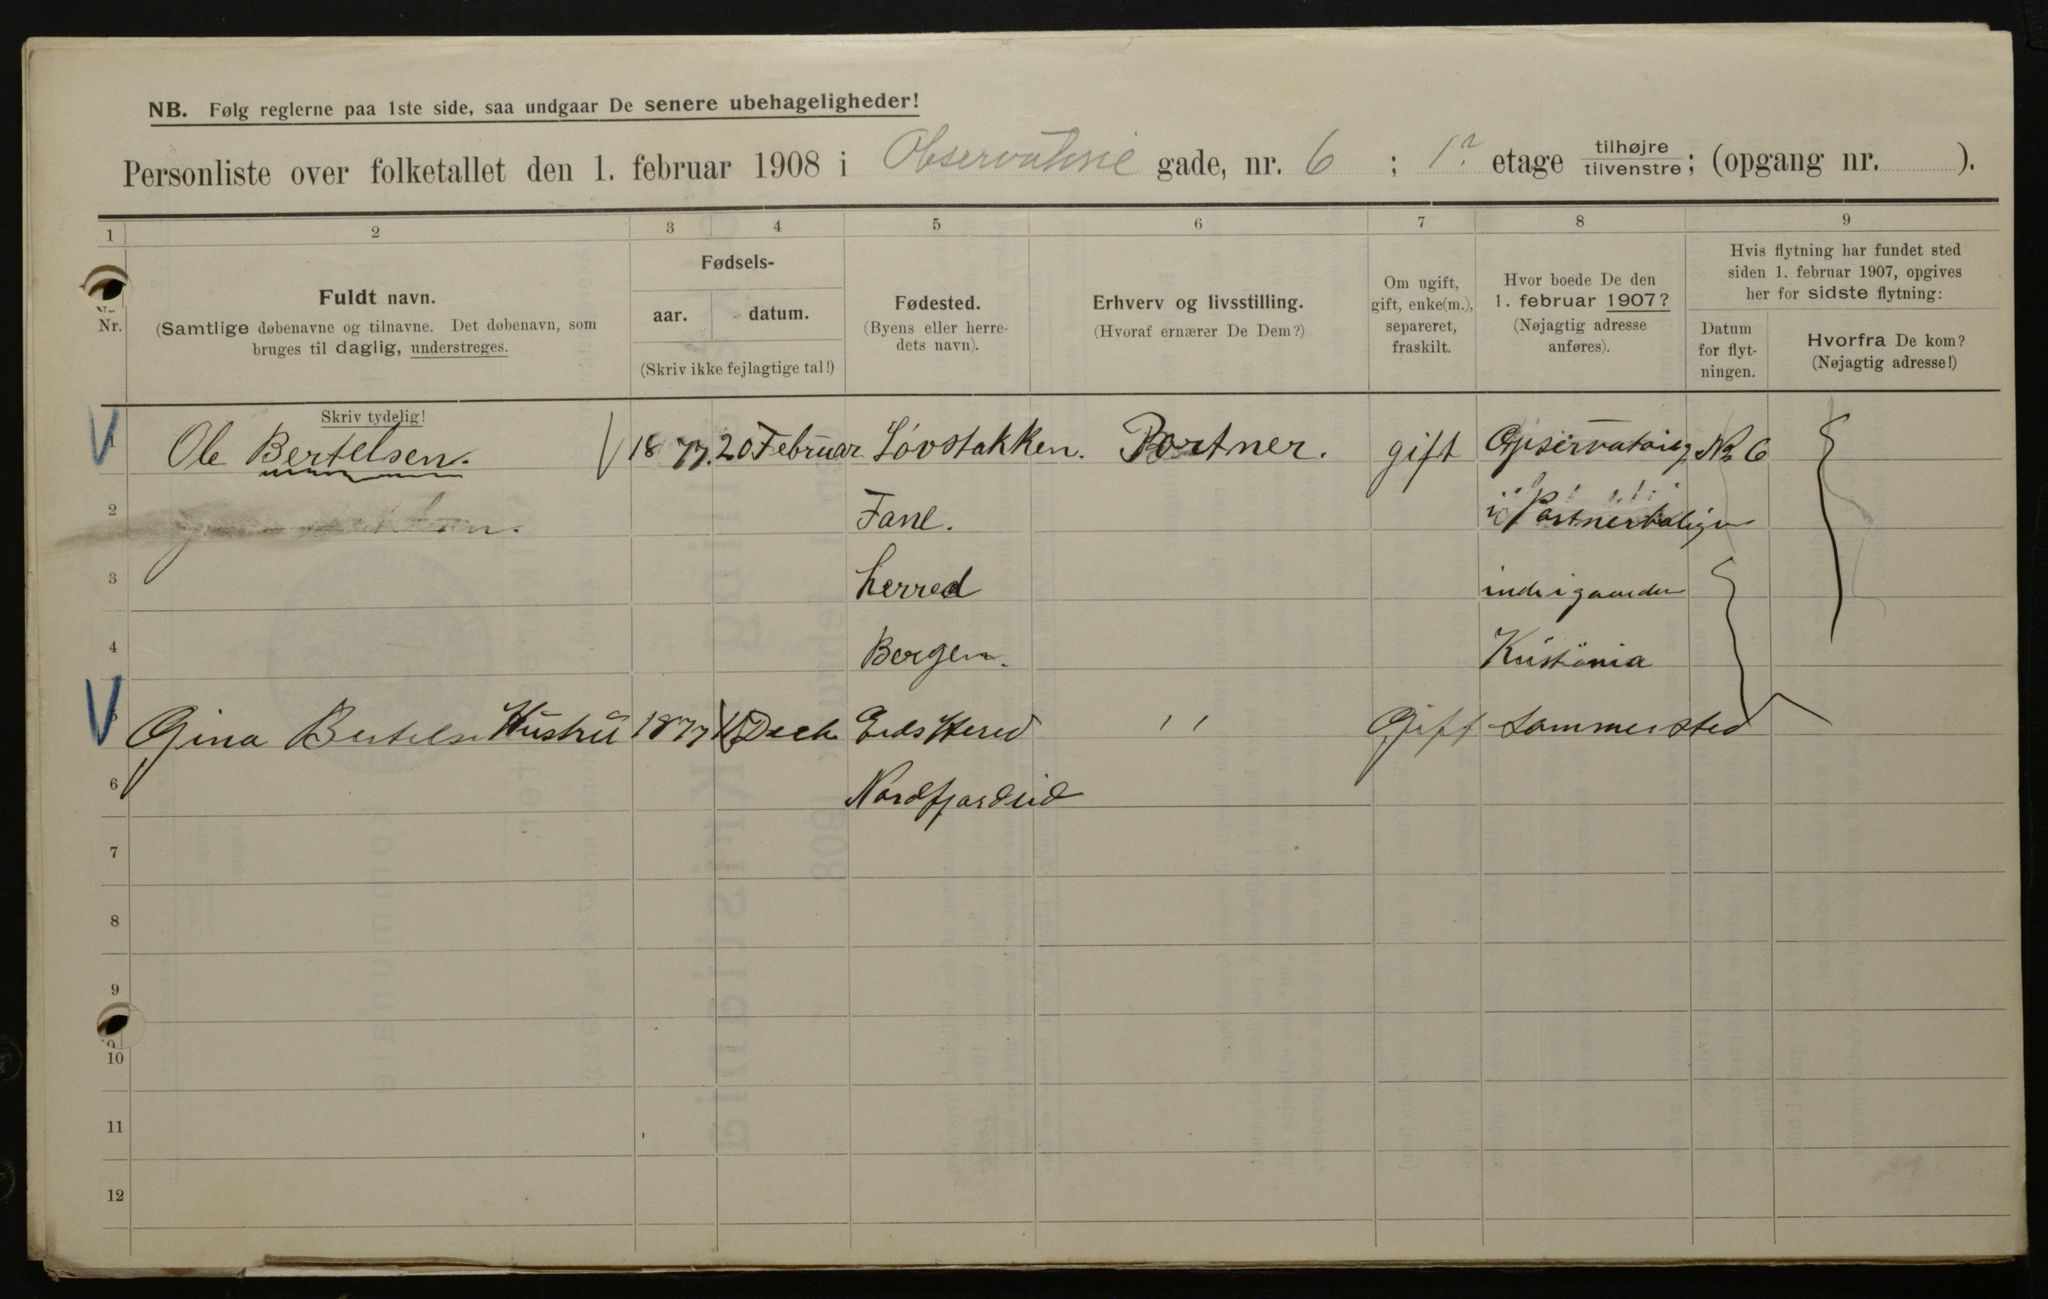 NB. Følg reglerne paa 1ste side, saa undgaar De senere ubehageligheder!
Personliste over folketallet den 1. februar 1908 i Observatorie gade, nr. 6 ; 1. etage tilhøjre tilvenstre; (opgang nr. ).
1 2 3 4 5 6 7 8 9
Nr.
Fuldt navn.
(Samtlige døbenavne og tilnavne. Det døbenavn, som
bruges til daglig, understreges.
Skriv tydelig!
Fødsels-
aar. datum.
(Skriv ikke fejlagtige tal!)
Fødested.
(Byens eller herre-
dets navn).
Erhverv og livsstilling.
(Hvoraf ernærer De Dem?)
Om ugift,
gift, enke(m.),
separeret,
fraskilt.
Hvor boede De den
1. februar 1907?
(Nøjagtig adresse
anføres).
Hvis flytning har fundet sted
siden 1. februar 1907, opgives
her for sidste flytning:
Datum
for flyt-
ningen.
Hvorfra De kom?
(Nøjagtig adresse!)
1 Ole Bertelsen. 1877. 20 Februar Løvstakken. Portner. gift Opservatorieg No 6
2 Fane. i Portnerboligen
3 herred ind i gaarden
4 Bergen. Kristiania
5 Gina Bertelse Hustru 1877 Decb Eids Hered " Gift Sammested
6 Nordfjordeid
7
8
9
10
11
12